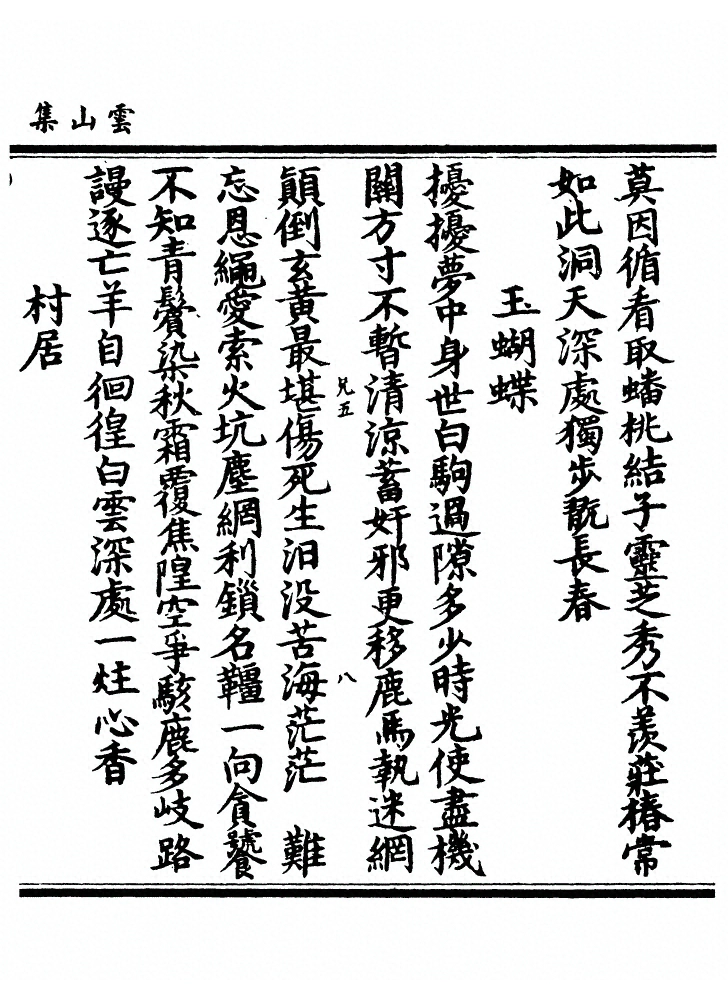 雲山集
莫因循看取蟠桃結子靈芝秀不羨莊椿常
如此洞天深處獨步翫長春
玉蝴蝶
擾擾夢中身世白駒過隙多少時光使盡機
關方寸不暫清涼蓄奸邪更移鹿馬執迷網
兄五
八
顛倒玄黃最堪傷死生汩没苦海茫茫 難
忘恩繩愛索火坑塵網利鎖名韁一向貪饕
不知青鬢染秋霜覆焦隍空爭駭鹿多岐路
謾逐亡羊自徊徨白雲深處一炷心香
村居